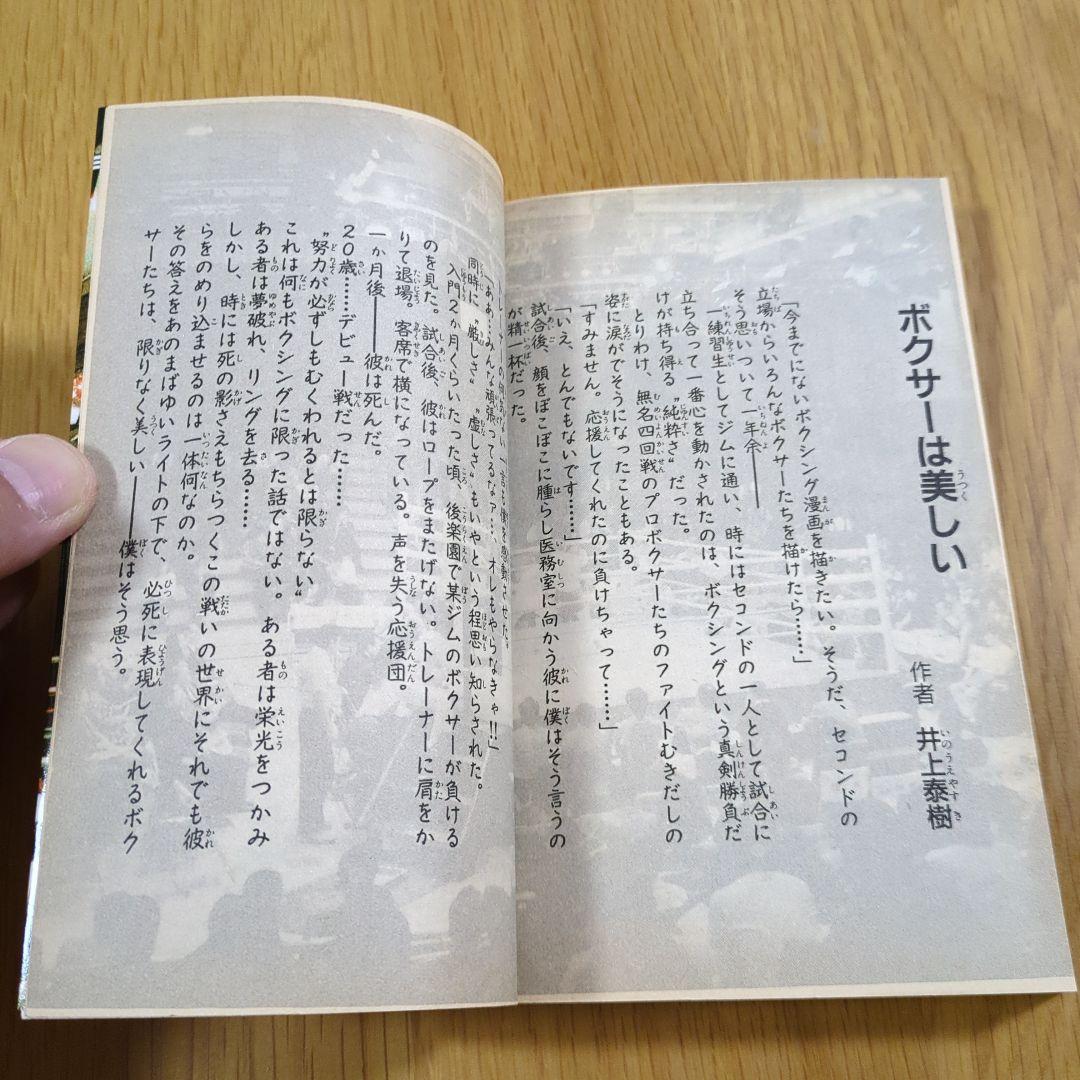 ボクサーは美しい
作者 井上泰樹
「今までにないボクシング漫画を描きたい。そうだ、セコンドの
立場からいろんなボクサーたちを描けたら……」
そう思いついて一年余――
一練習生としてジムに通い、時にはセコンドの一人として試合に
立ち合って一番心を動かされたのは、ボクシングという真剣勝負だ
けが持ち得る〝純粋さ〟だった。
とりわけ、無名四回戦のプロボクサーたちのファイトむきだしの
姿に涙がでそうになったこともある。
「すみません。応援してくれたのに負けちゃって……」
「いえ、とんでもないです……」
試合後、顔をぼこぼこに腫らし医務室に向かう彼に僕はそう言うの
が精一杯だった。
「ああ、みんな頑張ってるなァ…、オレもやらなきゃ!!」
同時に〝厳しさ〟〝虚しさ〟もいやという程思い知らされた。
入門2か月くらいたった頃、後楽園で某ジムのボクサーが負ける
のを見た。試合後、彼はロープをまたげない。トレーナーに肩をか
りて退場。客席で横になっている。声を失う応援団。
一か月後――彼は死んだ。
20歳……デビュー戦だった……
〝努力が必ずしもむくわれるとは限らない〟
これは何もボクシングに限った話ではない。ある者は栄光をつかみ
ある者は夢破れ、リングを去る……
しかし、時には死の影さえもちらつくこの戦いの世界にそれでも彼
らをのめり込ませるのは一体何なのか。
その答えをあのまばゆいライトの下で、必死に表現してくれるボク
サーたちは、限りなく美しい――僕はそう思う。